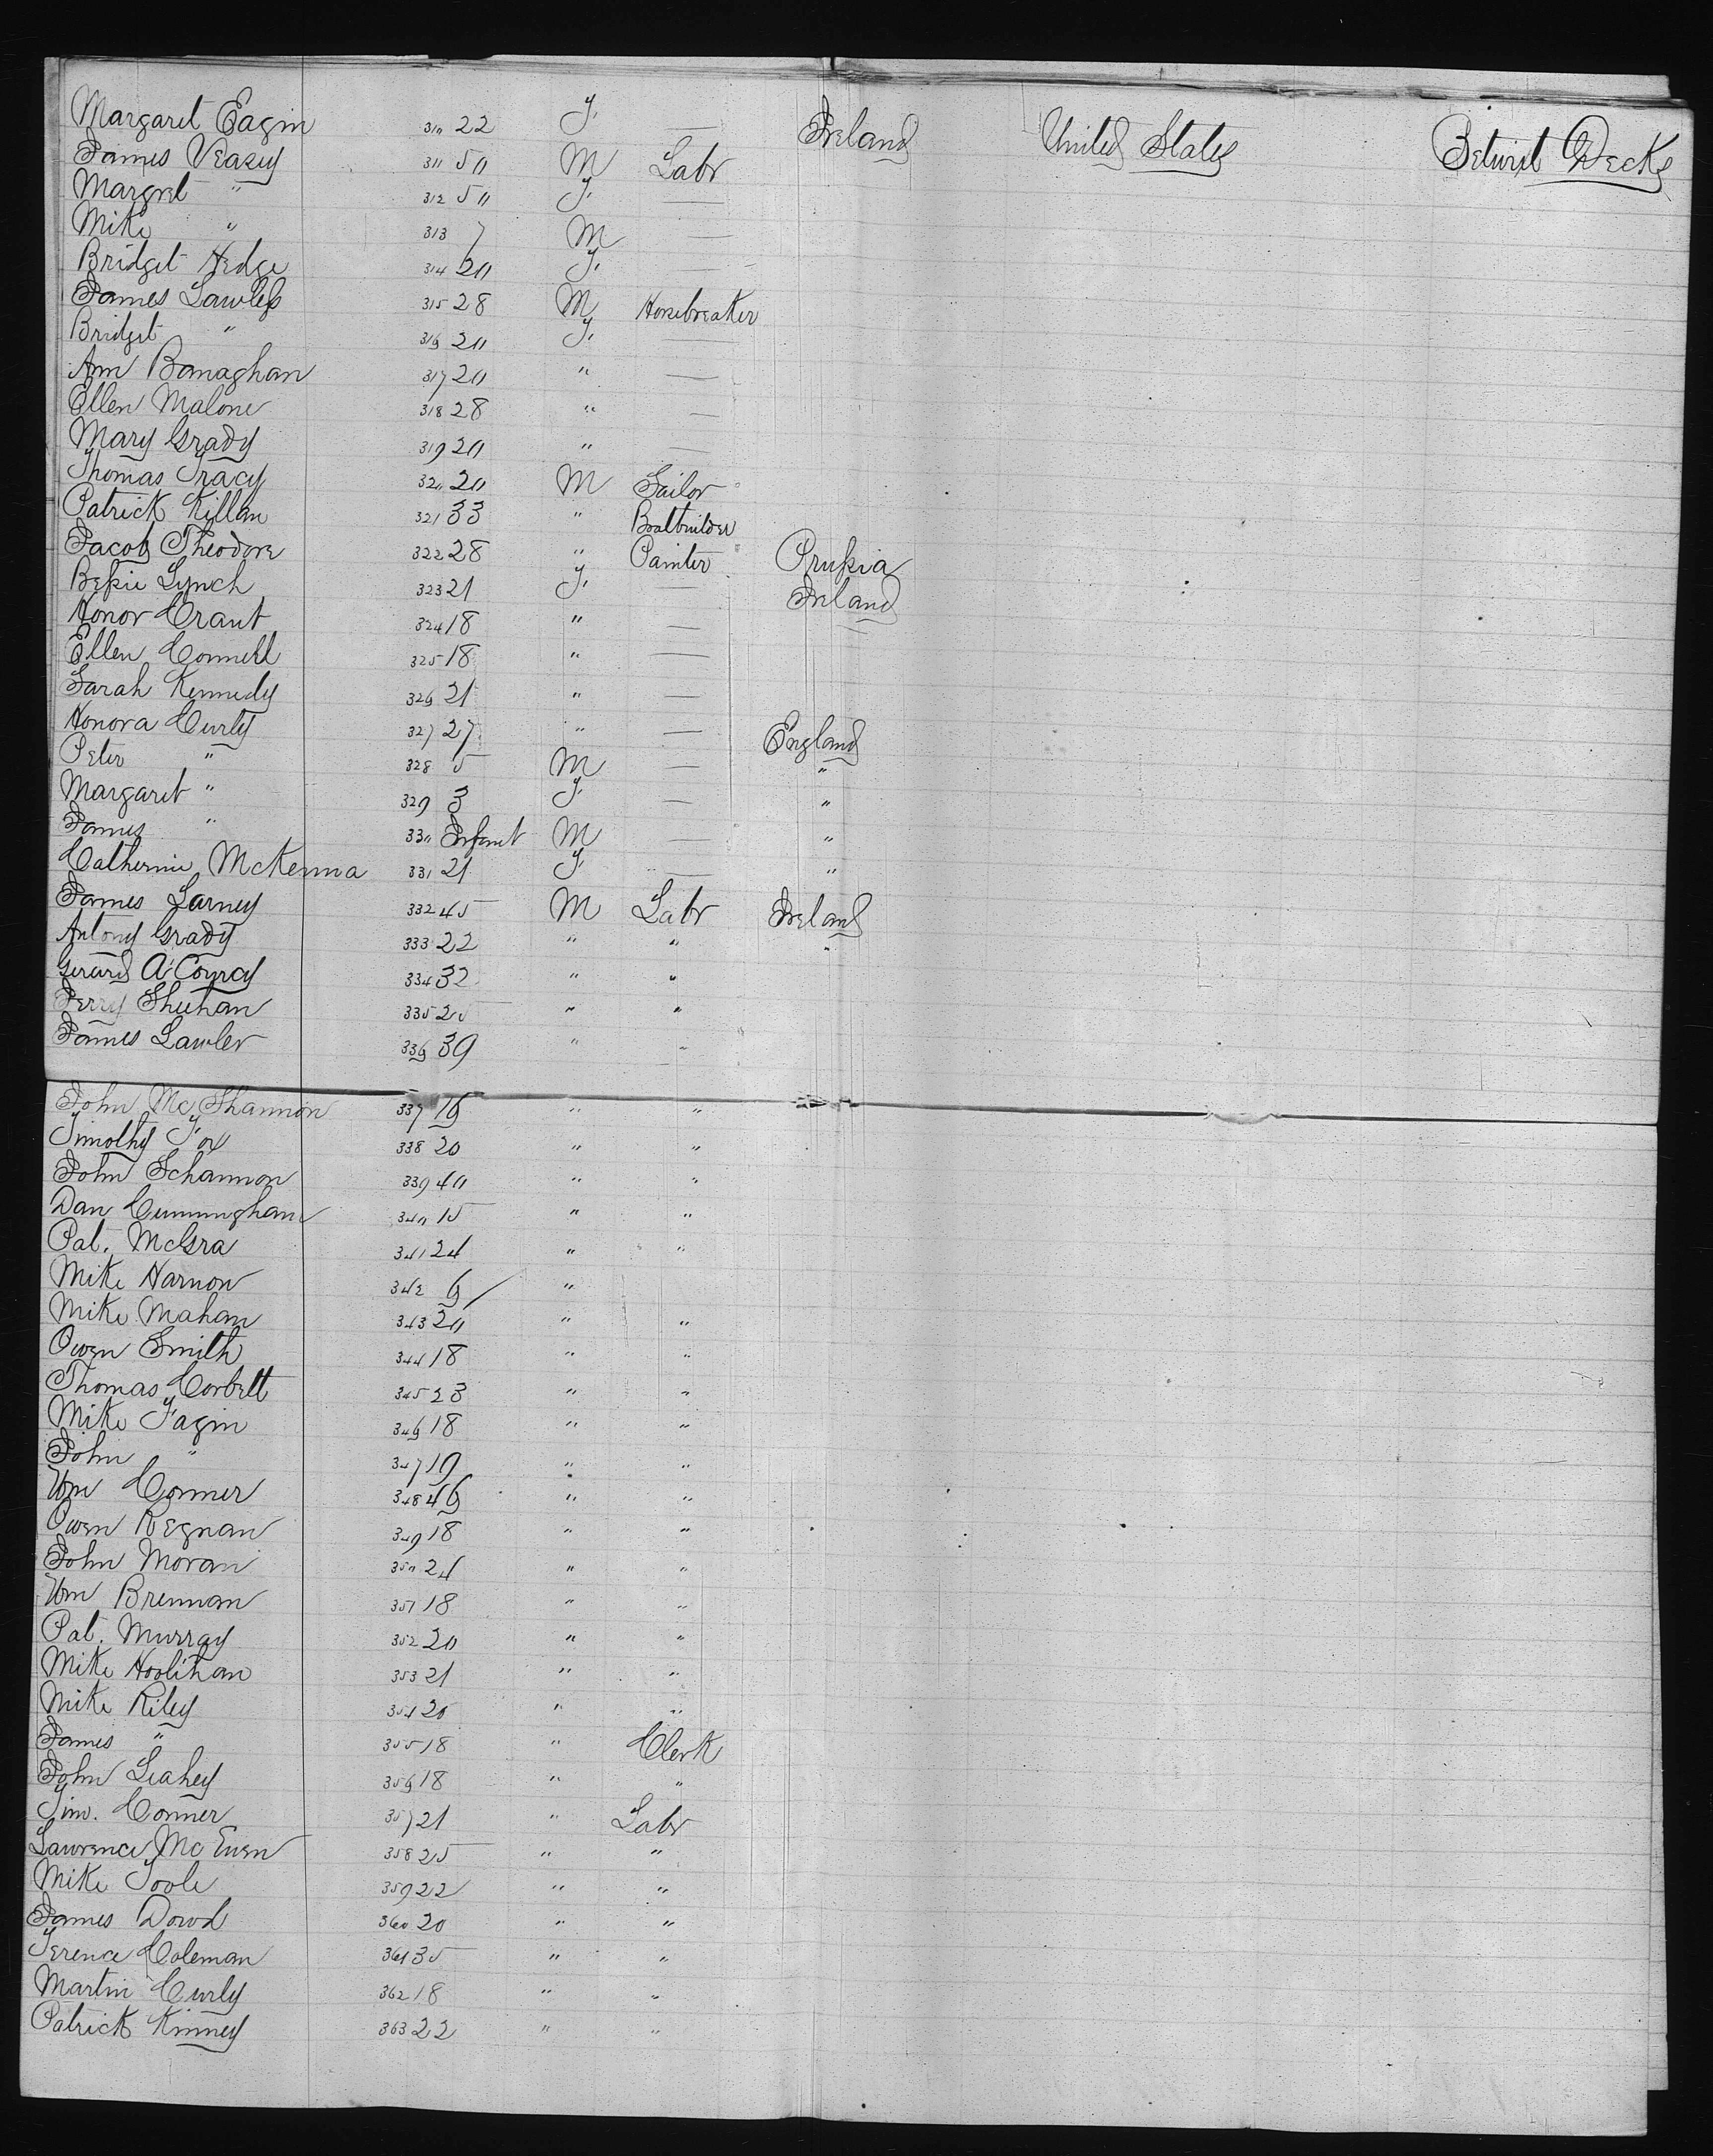 Margaret Eagin 310 22 F. — Ireland United States Betwixt Decks
James Veasey 311 50 M Labr
Margret " 312 50 F. —
Mike " 313 7 M —
Bridget Hedge 314 20 F. —
James Lawless 315 28 M Horsebreaker
Bridget " 316 20 F. —
Ann Banaghan 317 20 " —
Ellen Malone 318 28 " —
Mary Grady 319 20 " —
Thomas Tracy 320 20 M Sailor
Patrick Killan 321 33 " Boatbuilder
Jacob Theodore 322 28 " Painter Prussia
Bessie Lynch 323 21 F. — Ireland
Honor Crant 324 18 " —
Ellen Connell 325 18 " —
Sarah Kennedy 326 21 " —
Honora Curly 327 27 " — England
Peter " 328 5 M — "
Margaret " 329 3 F. — "
James " 330 Infant M — "
Catherine McKenna 331 21 F. — "
James Larney 332 45 M Labr Ireland
Antony Grady 333 22 " " "
Gerard A'Courcy 334 32 " "
Jerry Sheehan 335 25 " "
James Lawler 336 39 " "
John McShannon 337 16 " "
Timothy Fox 338 20 " "
John Schannon 339 40 " "
Dan Cunningham 340 15 " "
Pat. McGra 341 24 " "
Mike Harnon 342 6 "
Mike Mahan 343 20 " "
Owen Smith 344 18 " "
Thomas Corbett 345 23 " "
Mike Fagin 346 18 " "
John " 347 19 " "
Wm Conner 348 46 " "
Owen Regnan 349 18 " "
John Moran 350 24 " "
Wm Brennan 351 18 " "
Pat. Murray 352 20 " "
Mike Hoolihan 353 21 " "
Mike Riley 354 20 " "
James " 355 18 " Clerk
John Leahey 356 18 " "
Tim. Conner 357 21 " Labr
Lawrence McEwen 358 25 " "
Mike Toole 359 22 " "
James Dowd 360 20 " "
Terence Coleman 361 35 " "
Martin Curly 362 18 " "
Patrick Kinney 363 22 " "